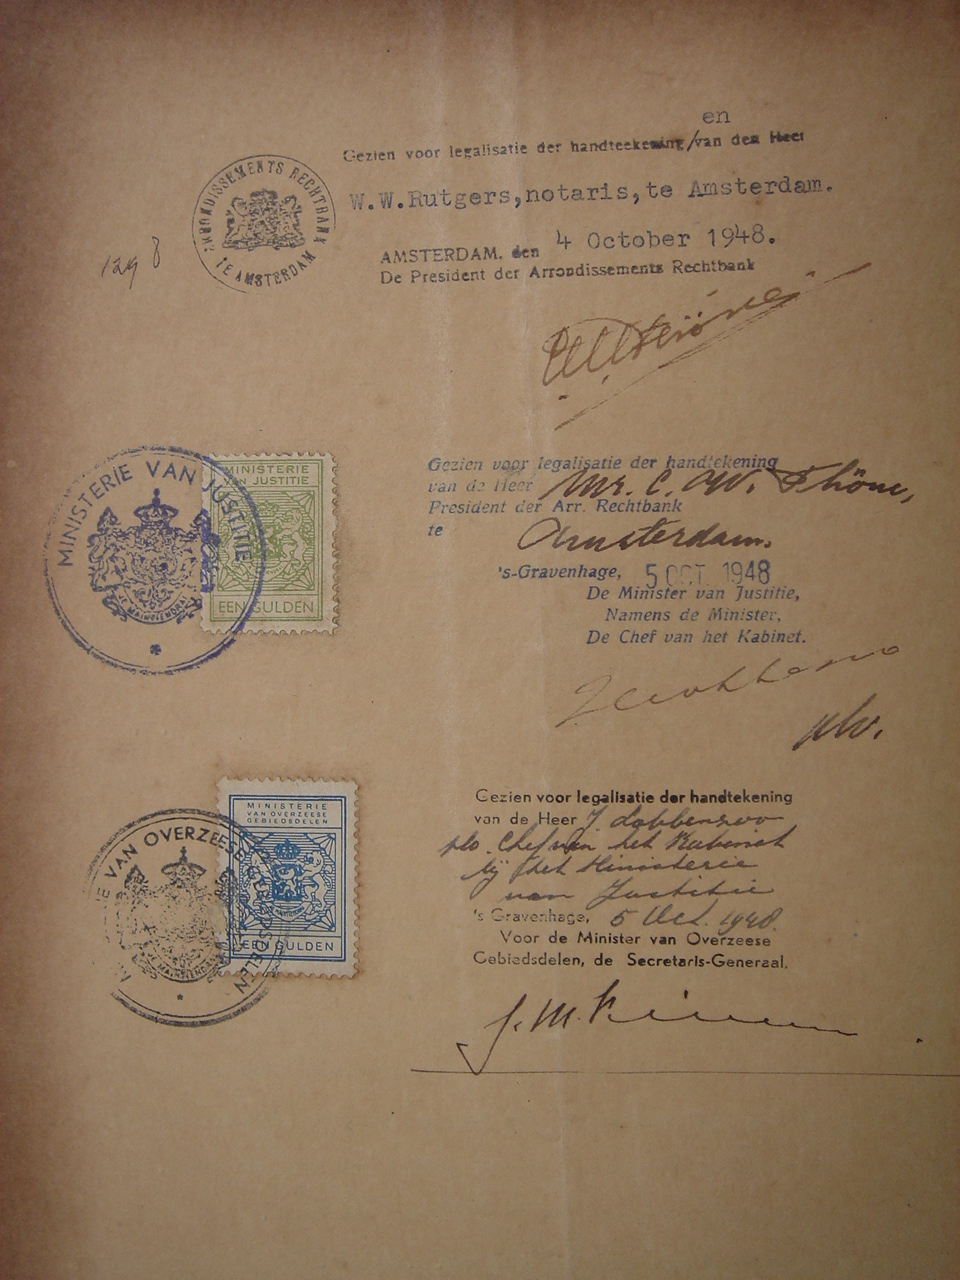 en
Gezien voor legalisatie der handteekening/van den Heer
W.W.Rutgers,notaris,te Amsterdam.
AMSTERDAM, den 4 October 1948.
De President der Arrondissements Rechtbank
ARRONDISSEMENTS RECHTBANK
TE AMSTERDAM
MINISTERIE VAN JUSTITIE
JE MAINTIENDRAI
MINISTERIE
VAN JUSTITIE
EEN GULDEN
Gezien voor legalisatie der handtekening
van de Heer Mr. C. W. Thöne,
President der Arr. Rechtbank
te Amsterdam.
's-Gravenhage, 5 OCT 1948
De Minister van Justitie,
Namens de Minister,
De Chef van het Kabinet.
plv.
VAN OVERZEESE GEBIEDSDELEN
JE MAINTIENDRAI
MINISTERIE
VAN OVERZEESE
GEBIEDSDELEN
EEN GULDEN
Gezien voor legalisatie der handtekening
van de Heer J
plv. Chef van het Kabinet
bij het Ministerie
van Justitie
's Gravenhage, 5 Oct. 1948.
Voor de Minister van Overzeese
Gebiedsdelen, de Secretaris-Generaal.